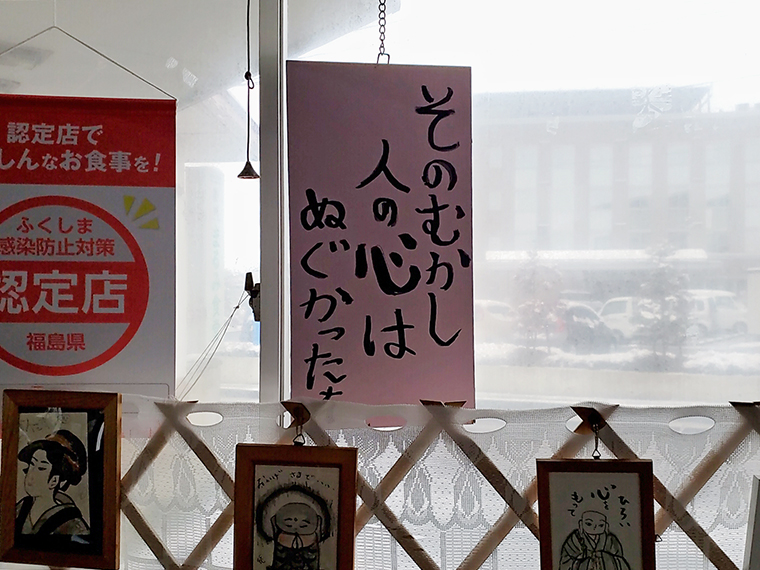 認定店で
しんなお食事を!
ふくしま
感染防止対策
認定店
福島県
そのむかし
人の心は
ぬぐかった
ひろい
心を
もって